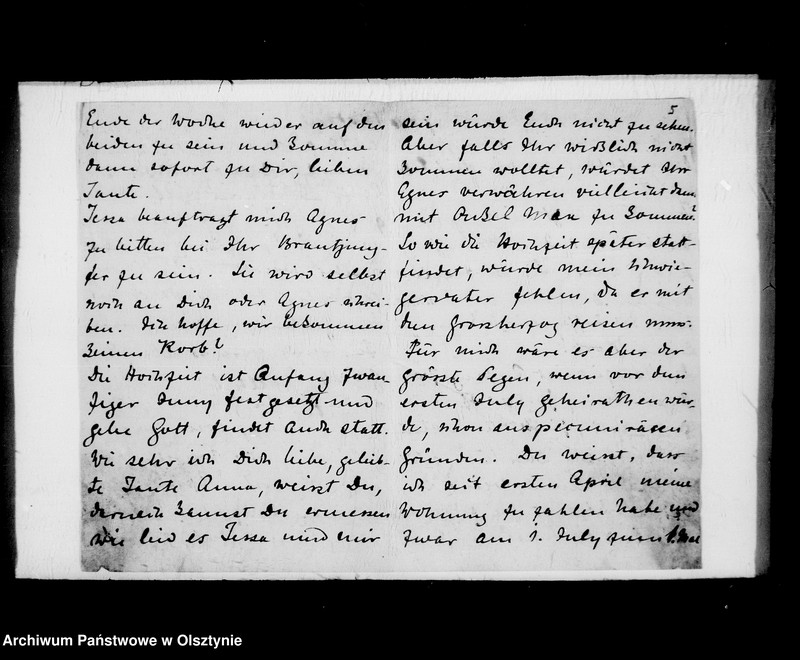 Ende der Woche wieder auf den
beiden zu sein und komme
dann sofort zu Dir, lieben
Tante.
Tessa beauftragt mich Agnes
zu bitten bei Ihr Brautjung-
fer zu sein. Sie wird selbst
noch an Dich oder Agnes schrei-
ben. Ich hoffe, wir bekommen
keinen Korb?
Die Hochzeit ist Anfang zwan-
ziger Juny festgesetzt und
gebe Gott, findet auch statt.
Wie sehr ich Dich liebe, gelieb-
te Tante Anna, weisst Du,
darnach kannst Du ermessen
wie leid es Tessa und mir
5
sein würde Euch nicht zu sehen.
Aber falls Ihr wirklich nicht
kommen wolltet, würdet Ihr
Agnes verwähren vielleicht dann
mit Onkel Max zu kommen?
So wie die Hochzeit später statt-
findet, würde mein Schwie-
gervater fehlen, da er mit
dem Grossherzog reisen muss.
Für mich wäre es aber der
grösste Segen, wenn vor dem
ersten July geheirathen wür-
de, schon aus pecuniräsen
Gründen. Du weisst, dass
ich seit ersten April meine
Wohnung zu zahlen habe und
zwar am 1. July zum
Archiwum Państwowe w Olsztynie